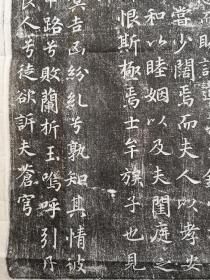 嘗少闊焉而夫人以孝安
和以睦姻以及夫閨庭之
恨斯極焉士牟子也見
其吉凶紛糺兮孰知其情彼
路兮敗蘭折玉嗚呼引丹
人兮徒欲訴夫蒼穹